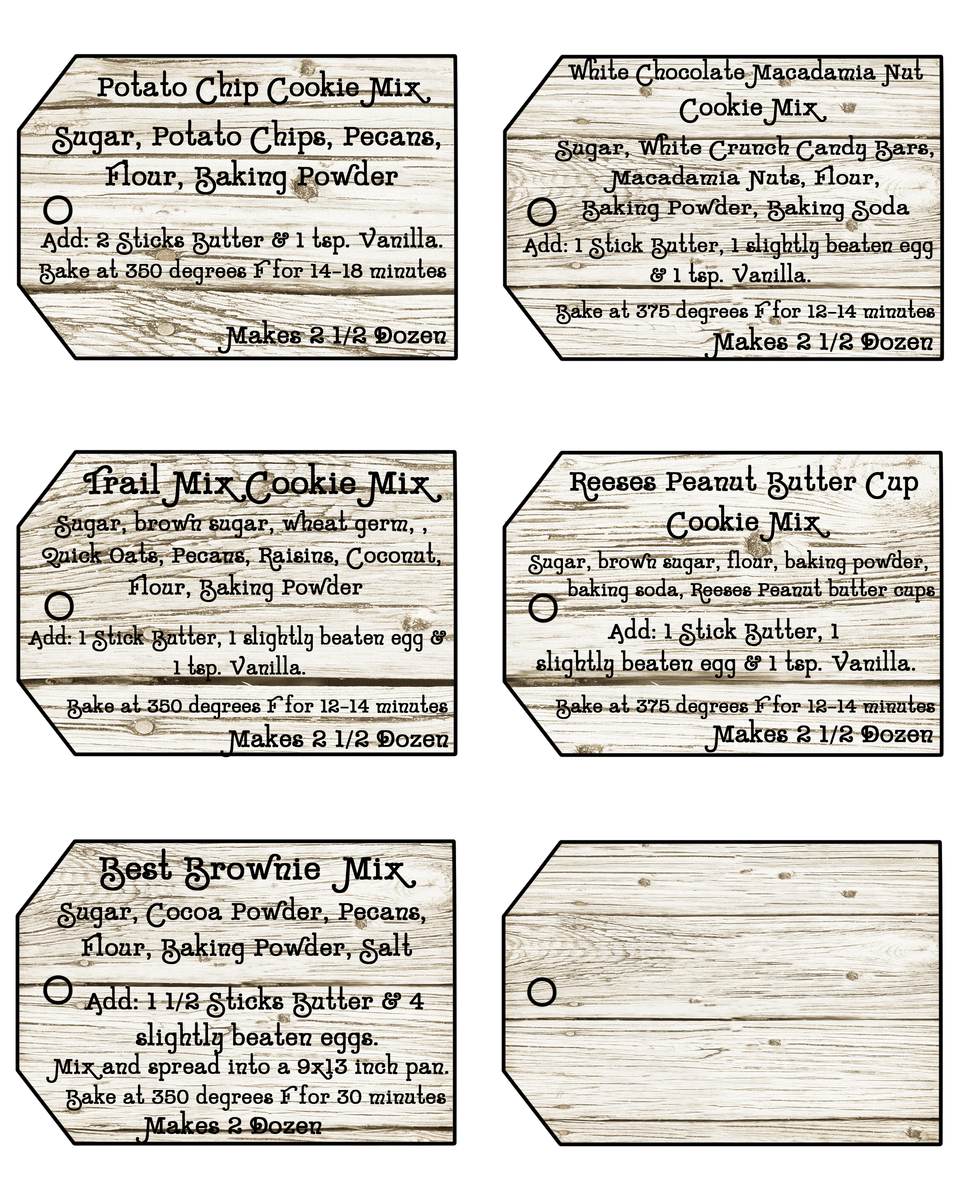 Potato Chip Cookie Mix
Sugar, Potato Chips, Pecans,
Flour, Baking Powder
Add: 2 Sticks Butter & 1 tsp. Vanilla.
Bake at 350 degrees F for 14-18 minutes
Makes 2 1/2 Dozen
White Chocolate Macadamia Nut
Cookie Mix
Sugar, White Crunch Candy Bars,
Macadamia Nuts, Flour,
Baking Powder, Baking Soda
Add: 1 Stick Butter, 1 slightly beaten egg
& 1 tsp. Vanilla.
Bake at 375 degrees F for 12-14 minutes
Makes 2 1/2 Dozen
Trail Mix Cookie Mix
Sugar, brown sugar, wheat germ, ,
Quick Oats, Pecans, Raisins, Coconut,
Flour, Baking Powder
Add: 1 Stick Butter, 1 slightly beaten egg &
1 tsp. Vanilla.
Bake at 350 degrees F for 12-14 minutes
Makes 2 1/2 Dozen
Reeses Peanut Butter Cup
Cookie Mix
Sugar, brown sugar, flour, baking powder,
baking soda, Reeses Peanut butter cups
Add: 1 Stick Butter, 1
slightly beaten egg & 1 tsp. Vanilla.
Bake at 375 degrees F for 12-14 minutes
Makes 2 1/2 Dozen
Best Brownie Mix
Sugar, Cocoa Powder, Pecans,
Flour, Baking Powder, Salt
Add: 1 1/2 Sticks Butter & 4
slightly beaten eggs.
Mix and spread into a 9x13 inch pan.
Bake at 350 degrees F for 30 minutes
Makes 2 Dozen